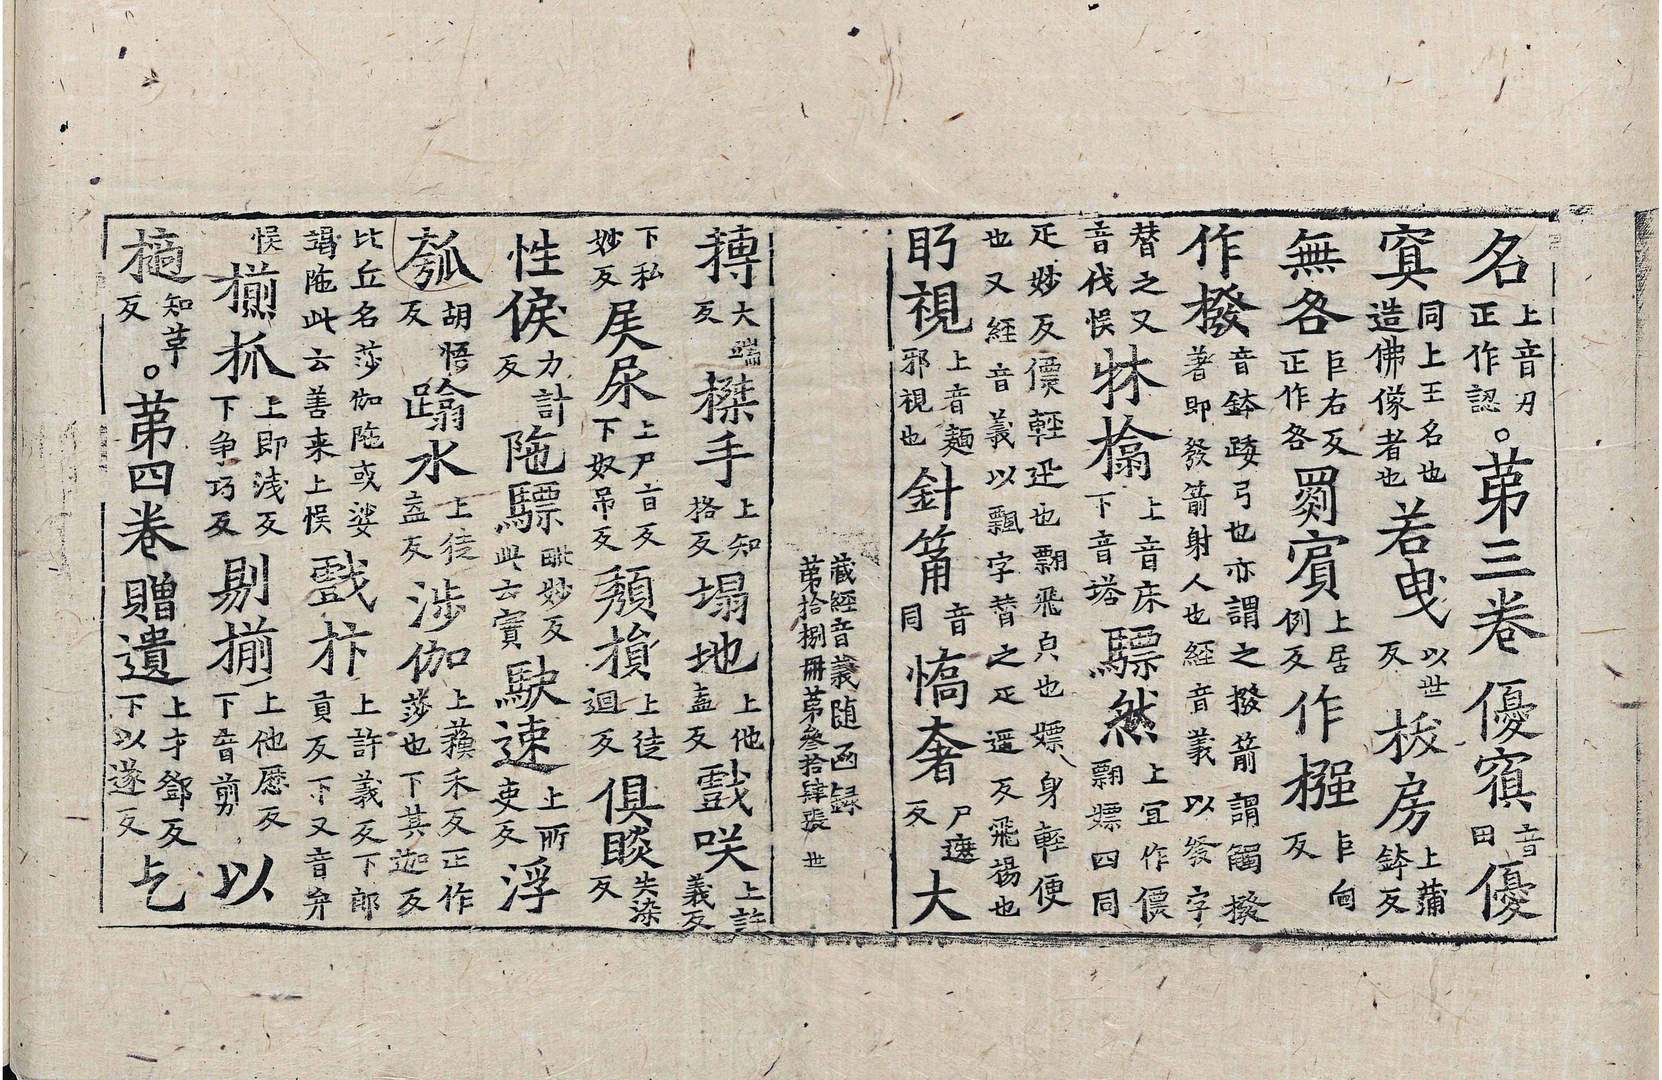 名上音刃正作認。苐三卷優賔音田優
寘同上王名也造佛像者也若曳以世反棱房上蒲鉢反
無各巨右反正作咎罽賔上居例反作掇
作撥音鉢踒弓也亦謂之撥箭謂觸撥著即發箭射人也經音義以發字
替之又音伐悮牀㯓上音床下音塔驃然上宜作僄飄嫖四同
疋妙反僄輕迅也飄飛皃也嫖身輕便也又經音義以飄字替之疋遥反飛揚也
眄視上音麺邪視也針筩音同憍奢尸遮反大
藏經音義随函録
苐拾捌冊苐叁拾肆張 世
搏大端反榤手上知格反塌地上他盍反戲咲上許義反
下私妙反𡱁尿上尸旨反下奴吊反頽損上徒迴反俱睒失染反
性悷力計反陁驃毗妙反此云實駃速上所吏反浮
瓠胡悟反蹹水上徒盍反涉伽上蘓禾反正作莎也下其迦反
比丘名莎伽陁或婆謁陁此云善来上悮戲抃上許義反下郎貢反下又音弁
悮㨵抓上即淺反下争巧反剔揃上他歷反下音剪以
樀知革反。苐四卷贈遺上才鄧反下以遂反乞